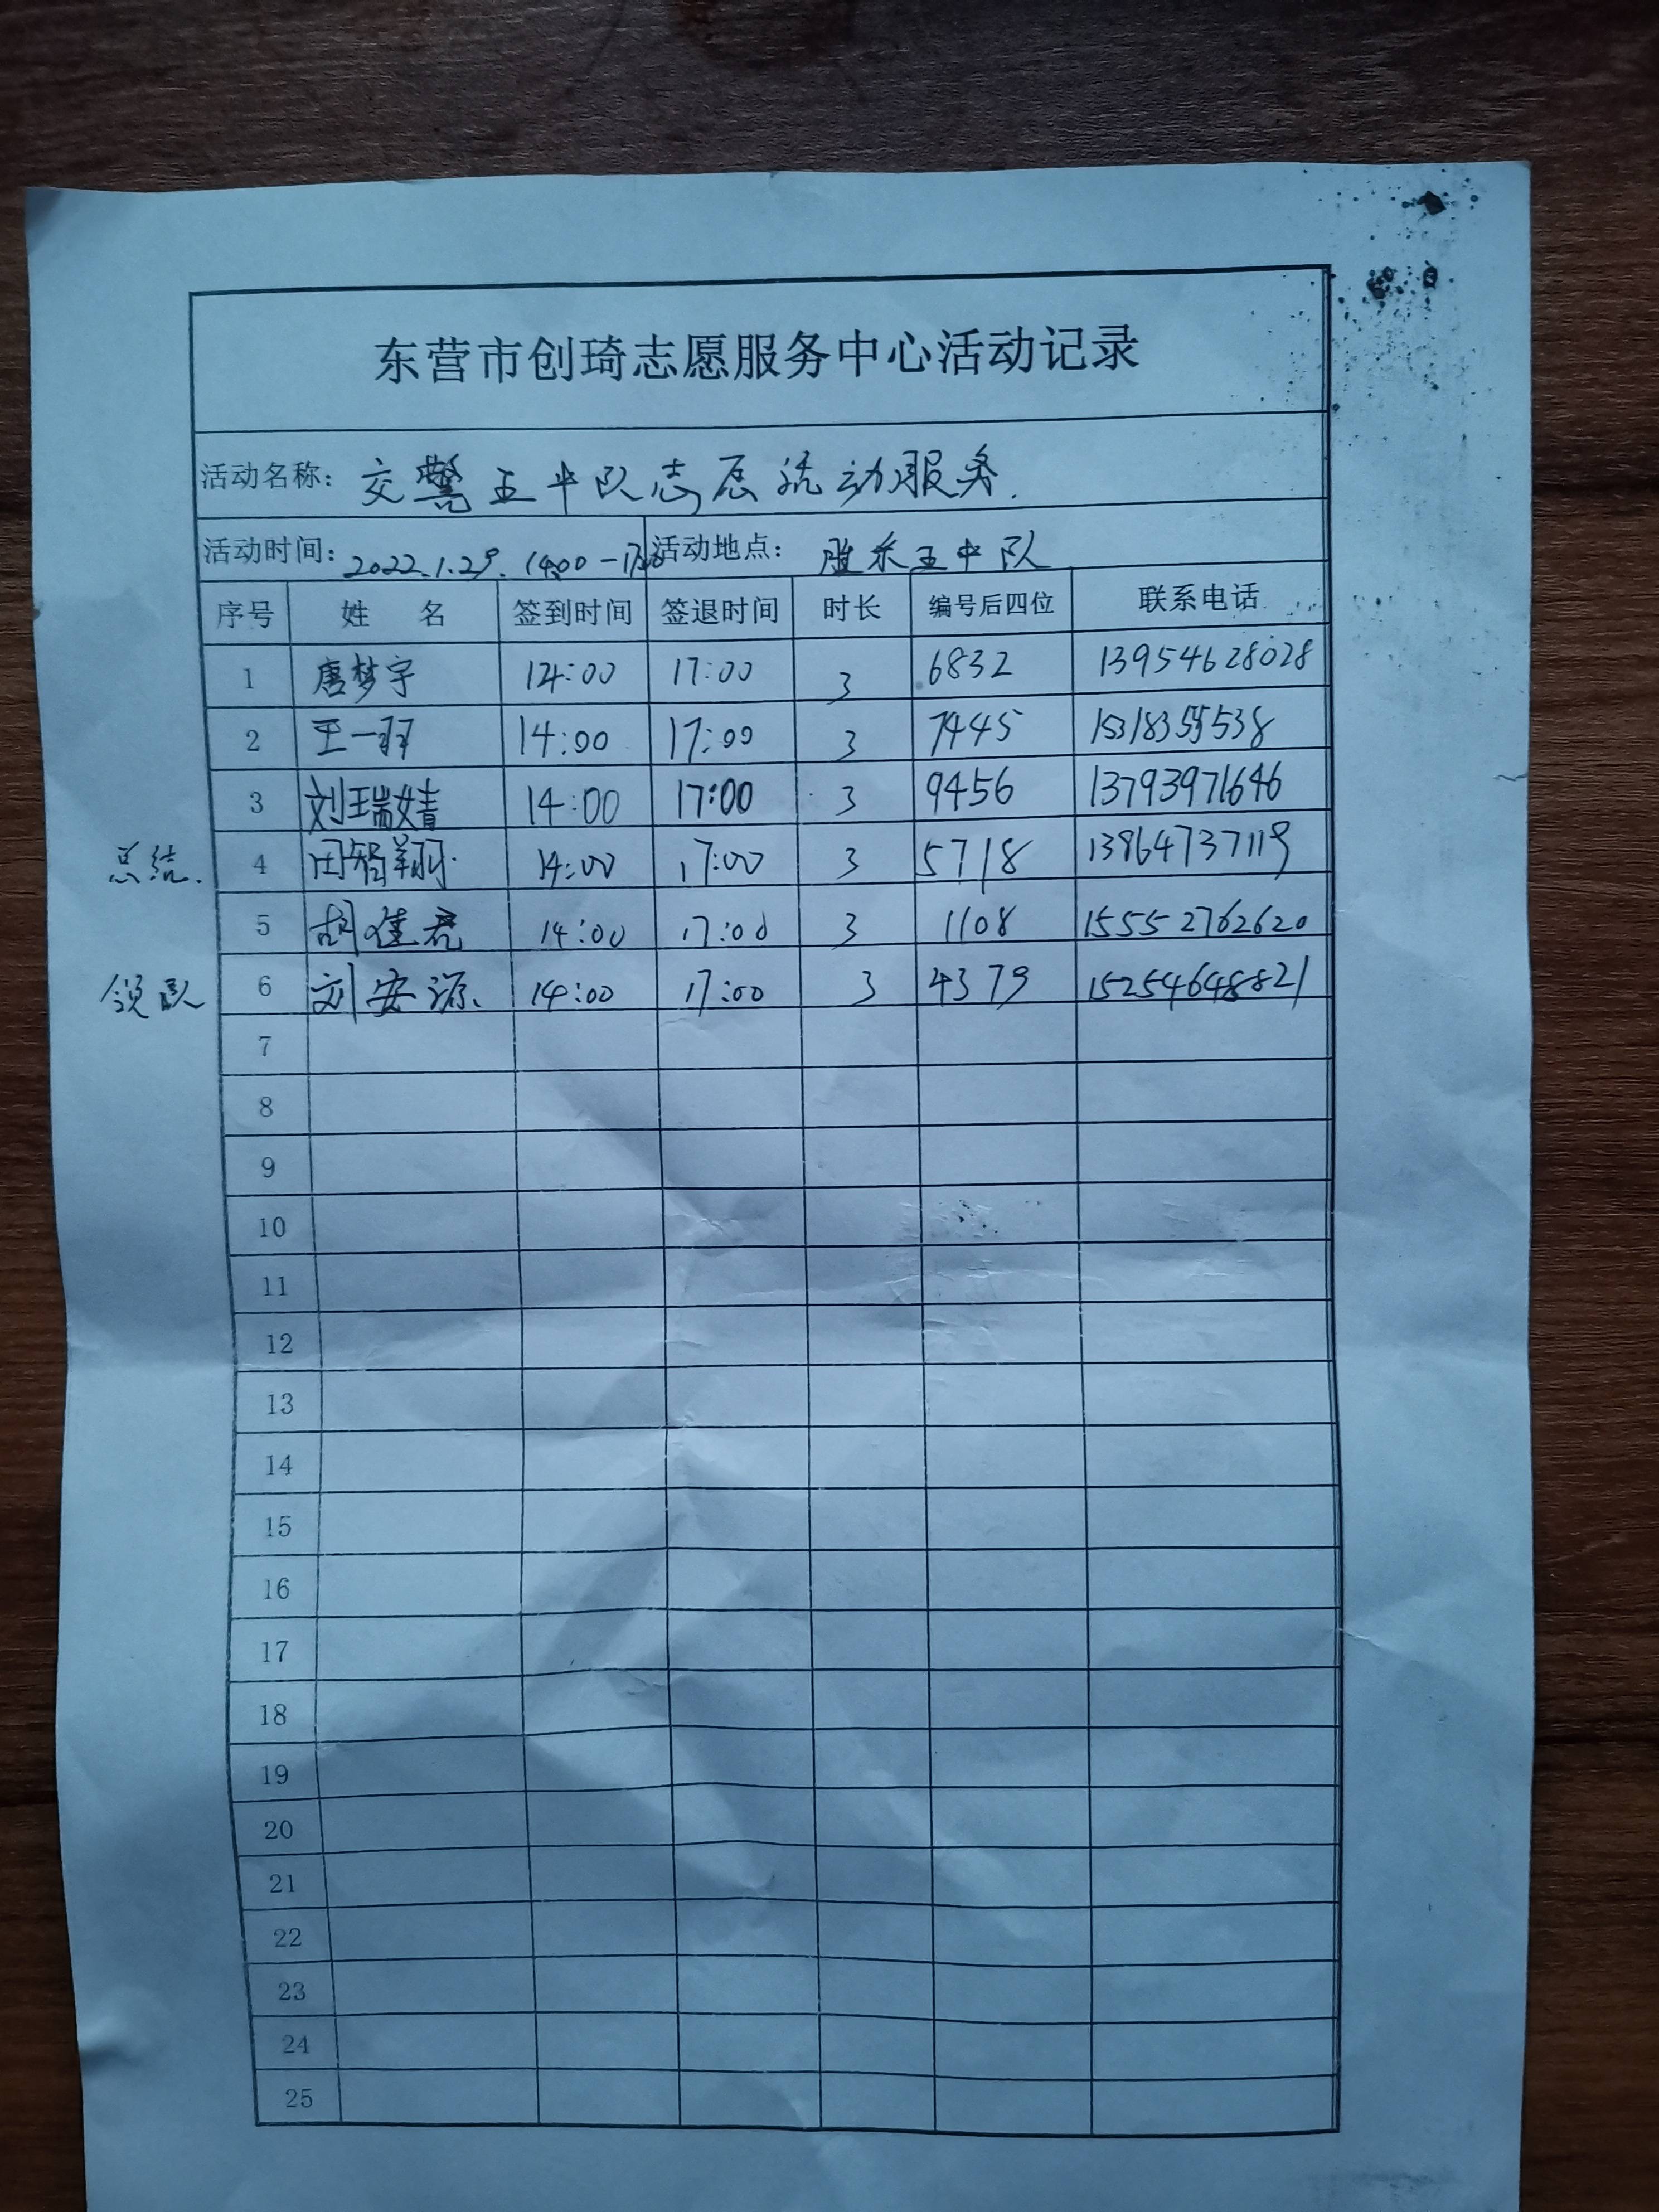 东营市创琦志愿服务中心活动记录
活动名称: 交警五中队志愿流动服务.
活动时间: 2022.1.29. 14:00-17:00 活动地点: 胜东五中队
序号 姓 名 签到时间 签退时间 时长 编号后四位 联系电话
1 唐梦宇 14:00 17:00 3 6832 13954628028
2 王一羽 14:00 17:00 3 7445
3 刘瑞婧 14:00 17:00 3 9456 13793971646
总结. 4 田智翔 14:00 17:00 3 5718 13864737119
5 胡佳尧 14:00 17:00 3 1108 15552762620
领队 6 刘安源 14:00 17:00 3 4379 15254648821
7
8
9
10
11
12
13
14
15
16
17
18
19
20
21
22
23
24
25